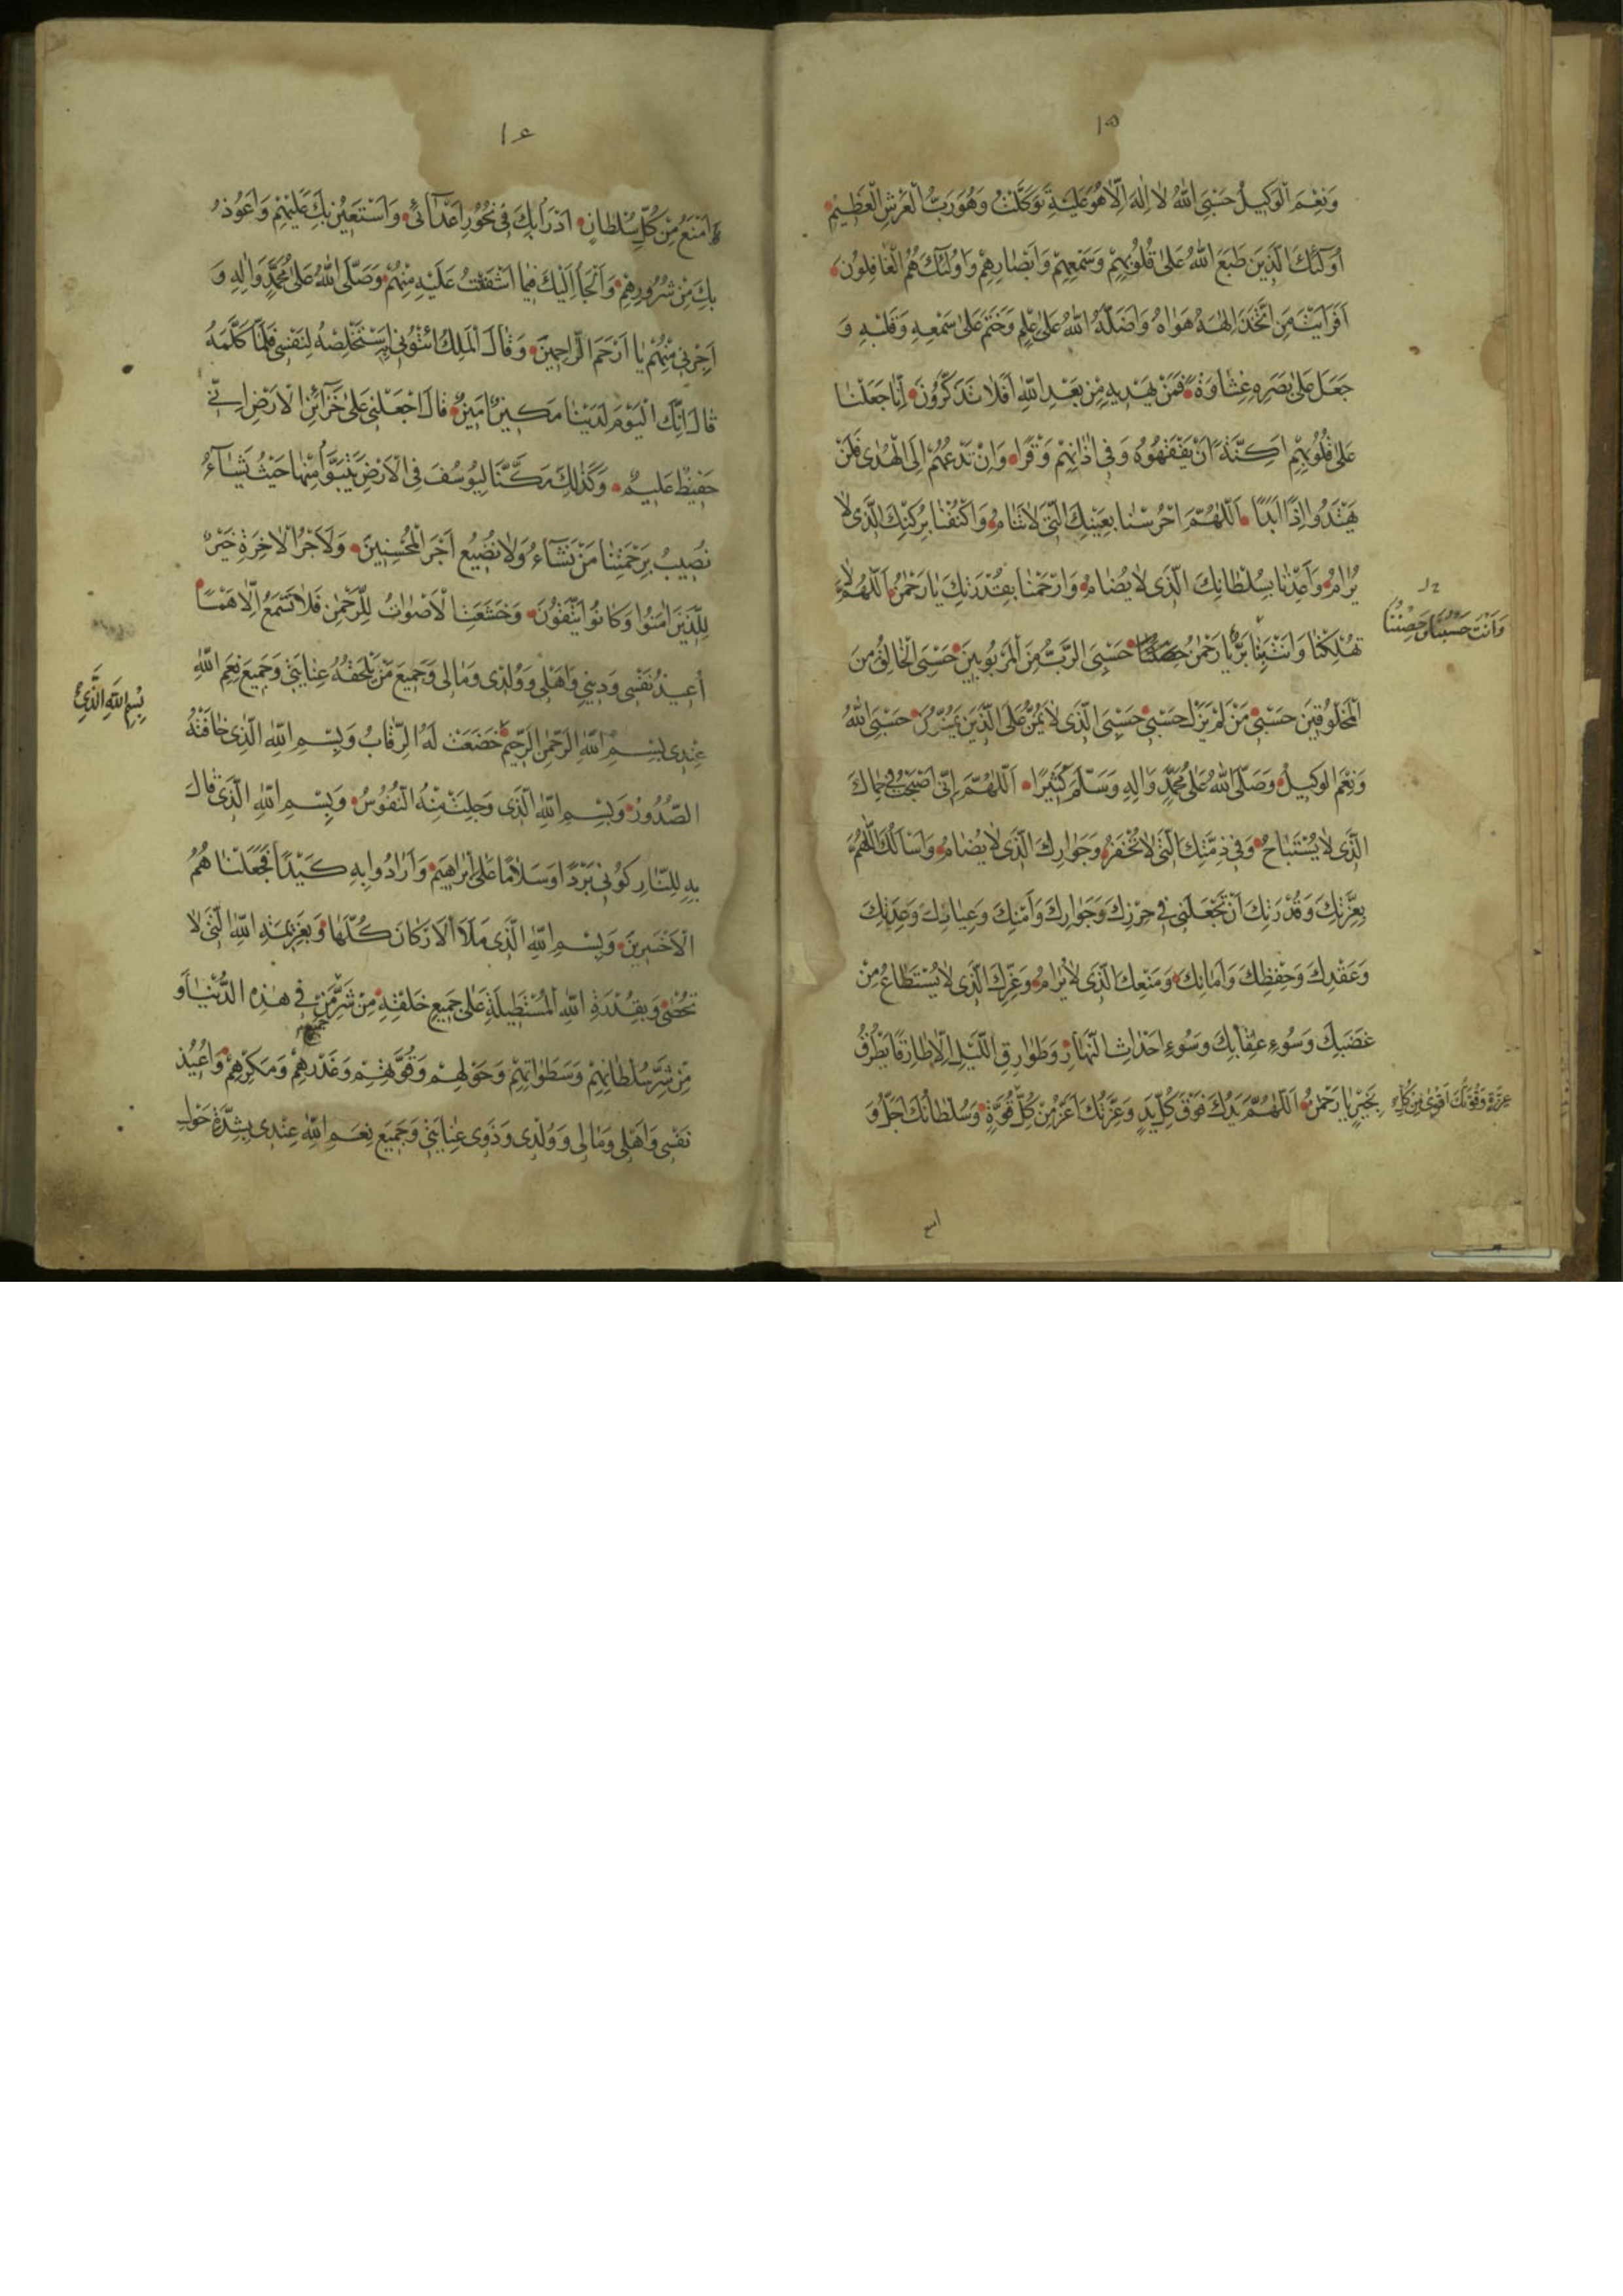 ١٥
وَنِعْمَ الْوَكِيلُ حَسْبِيَ اللّٰهُ لَا اِلٰهَ اِلَّا هُوَ عَلَيْهِ تَوَكَّلْتُ وَهُوَ رَبُّ الْعَرْشِ الْعَظِيمِ
اُولٰئِكَ الَّذِينَ طَبَعَ اللّٰهُ عَلٰى قُلُوبِهِمْ وَسَمْعِهِمْ وَاَبْصَارِهِمْ وَاُولٰئِكَ هُمُ الْغَافِلُونَ
اَفَرَاَيْتَ مَنِ اتَّخَذَ اِلٰهَهُ هَوَاهُ وَاَضَلَّهُ اللّٰهُ عَلٰى عِلْمٍ وَخَتَمَ عَلٰى سَمْعِهِ وَقَلْبِهِ وَ
جَعَلَ عَلٰى بَصَرِهِ غِشَاوَةً فَمَنْ يَهْدِيهِ مِنْ بَعْدِ اللّٰهِ اَفَلَا تَذَكَّرُونَ اِنَّا جَعَلْنَا
عَلٰى قُلُوبِهِمْ اَكِنَّةً اَنْ يَفْقَهُوهُ وَفِي اٰذَانِهِمْ وَقْرًا وَاِنْ تَدْعُهُمْ اِلَى الْهُدٰى فَلَنْ
يَهْتَدُوا اِذًا اَبَدًا اَللّٰهُمَّ احْرُسْنَا بِعَيْنِكَ الَّتِي لَا تَنَامُ وَاكْنُفْنَا بِرُكْنِكَ الَّذِي لَا
يُرَامُ وَاَعِذْنَا بِسُلْطَانِكَ الَّذِي لَا يُضَامُ وَارْحَمْنَا بِقُدْرَتِكَ يَا رَحْمٰنُ اَللّٰهُمَّ لَا
تُهْلِكْنَا وَاَنْتَ بِنَا بَرٌّ يَا رَحْمٰنُ حَسْبِيَ الرَّبُّ مِنَ الْمَرْبُوبِينَ حَسْبِيَ الْخَالِقُ مِنَ
وَاَنْتَ حَسْبُنَا وَحِصْنُنَا
الْمَخْلُوقِينَ حَسْبِي مَنْ لَمْ يَزَلْ حَسْبِي حَسْبِيَ الَّذِي لَا يَمُنُّ عَلَى الَّذِينَ يَمُنُّونَ حَسْبِيَ اللّٰهُ
وَنِعْمَ الْوَكِيلُ وَصَلَّى اللّٰهُ عَلٰى مُحَمَّدٍ وَاٰلِهِ وَسَلَّمَ كَثِيرًا اَللّٰهُمَّ اِنِّي اَصْبَحْتُ فِي حِمَاكَ
الَّذِي لَا يُسْتَبَاحُ وَفِي ذِمَّتِكَ الَّتِي لَا تُخْفَرُ وَجِوَارِكَ الَّذِي لَا يُضَامُ وَاَسْاَلُكَ اللّٰهُمَّ
بِعِزَّتِكَ وَقُدْرَتِكَ اَنْ تَجْعَلَنِي فِي حِرْزِكَ وَجِوَارِكَ وَاَمْنِكَ وَعِيَاذِكَ وَعِدَتِكَ
وَعَقْدِكَ وَحِفْظِكَ وَاَمَانِكَ وَمَنْعِكَ الَّذِي لَا يُرَامُ وَعِزِّكَ الَّذِي لَا يُسْتَطَاعُ مِنْ
غَضَبِكَ وَسُوءِ عِقَابِكَ وَسُوءِ اَحْدَاثِ النَّهَارِ وَطَوَارِقِ اللَّيْلِ اِلَّا طَارِقًا يَطْرُقُ
بِخَيْرٍ يَا رَحْمٰنُ اَللّٰهُمَّ يَدُكَ فَوْقَ كُلِّ يَدٍ وَعِزَّتُكَ اَعَزُّ مِنْ كُلِّ قُوَّةٍ وَسُلْطَانُكَ اَجَلُّ وَ
عِزَّةٍ وَقُوَّتُكَ اَقْوٰى مِنْ كُلِّ
١٦
اَمْنَعُ مِنْ كُلِّ سُلْطَانٍ اَدْرَأُ بِكَ فِي نُحُورِ اَعْدَائِي وَاَسْتَعِينُ بِكَ عَلَيْهِمْ وَاَعُوذُ
بِكَ مِنْ شُرُورِهِمْ وَاَلْجَاُ اِلَيْكَ فِيمَا اَشْفَقْتُ عَلَيْهِ مِنْهُمْ وَصَلَّى اللّٰهُ عَلٰى مُحَمَّدٍ وَاٰلِهِ وَ
اَجِرْنِي مِنْهُمْ يَا اَرْحَمَ الرَّاحِمِينَ وَقَالَ الْمَلِكُ ائْتُونِي بِهِ اَسْتَخْلِصْهُ لِنَفْسِي فَلَمَّا كَلَّمَهُ
قَالَ اِنَّكَ الْيَوْمَ لَدَيْنَا مَكِينٌ اَمِينٌ قَالَ اجْعَلْنِي عَلٰى خَزَائِنِ الْاَرْضِ اِنِّي
حَفِيظٌ عَلِيمٌ وَكَذٰلِكَ مَكَّنَّا لِيُوسُفَ فِي الْاَرْضِ يَتَبَوَّاُ مِنْهَا حَيْثُ يَشَاءُ
نُصِيبُ بِرَحْمَتِنَا مَنْ نَشَاءُ وَلَا نُضِيعُ اَجْرَ الْمُحْسِنِينَ وَلَاَجْرُ الْاٰخِرَةِ خَيْرٌ
لِلَّذِينَ اٰمَنُوا وَكَانُوا يَتَّقُونَ وَخَشَعَتِ الْاَصْوَاتُ لِلرَّحْمٰنِ فَلَا تَسْمَعُ اِلَّا هَمْسًا
اُعِيذُ نَفْسِي وَدِينِي وَاَهْلِي وَوُلْدِي وَمَالِي وَجَمِيعَ مَنْ تَلْحَقُهُ عِنَايَتِي وَجَمِيعَ نِعَمِ اللّٰهِ
عِنْدِي بِسْمِ اللّٰهِ الرَّحْمٰنِ الرَّحِيمِ خَضَعَتْ لَهُ الرِّقَابُ وَبِسْمِ اللّٰهِ الَّذِي خَافَتْهُ
بِسْمِ اللّٰهِ الَّذِي
الصُّدُورُ وَبِسْمِ اللّٰهِ الَّذِي وَجِلَتْ مِنْهُ النُّفُوسُ وَبِسْمِ اللّٰهِ الَّذِي قَالَ
بِهِ لِلنَّارِ كُونِي بَرْدًا وَسَلَامًا عَلٰى اِبْرَاهِيمَ وَاَرَادُوا بِهِ كَيْدًا فَجَعَلْنَا هُمُ
الْاَخْسَرِينَ وَبِسْمِ اللّٰهِ الَّذِي مَلَاَ الْاَرْكَانَ كُلَّهَا وَبِعَزِيمَةِ اللّٰهِ الَّتِي لَا
تُحْصٰى وَبِقُدْرَةِ اللّٰهِ الْمُسْتَطِيلَةِ عَلٰى جَمِيعِ خَلْقِهِ مِنْ شَرِّ مَنْ فِي هٰذِهِ الدُّنْيَا وَ
مِنْ شَرِّ سُلْطَانِهِمْ وَسَطَوَاتِهِمْ وَحَوْلِهِمْ وَقُوَّتِهِمْ وَغَدْرِهِمْ وَمَكْرِهِمْ وَاُعِيذُ
نَفْسِي وَاَهْلِي وَمَالِي وَوُلْدِي وَذَوِي عِنَايَتِي وَجَمِيعَ نِعَمِ اللّٰهِ عِنْدِي بِشِدَّةِ حَوْلِ